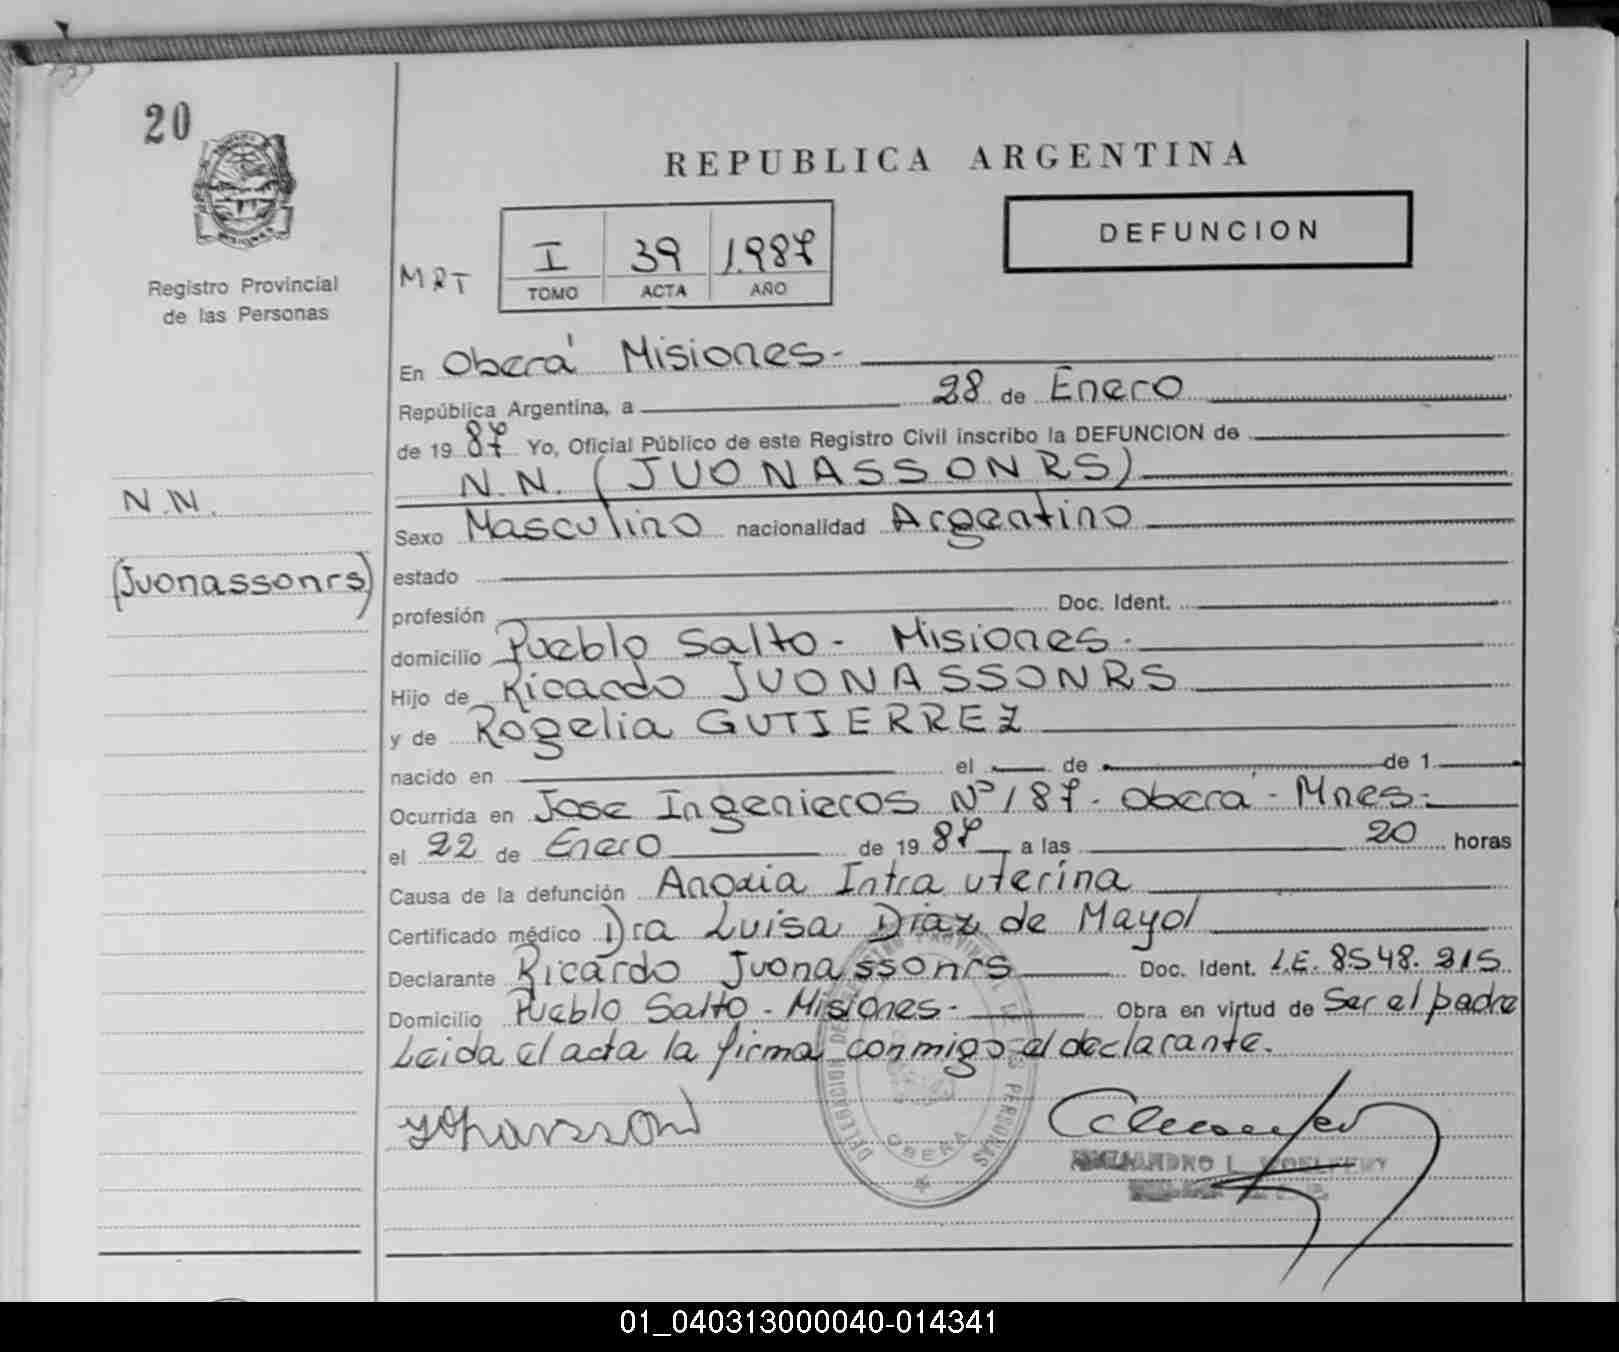 20
MISIONES
Registro Provincial
de las Personas
N.N.
(Juonassonrs)
REPUBLICA ARGENTINA
DEFUNCION
MRT
I 39 1.987
TOMO ACTA AÑO
En Oberá Misiones-
República Argentina, a 28 de Enero
de 19 87 Yo, Oficial Público de este Registro Civil inscribo la DEFUNCION de
N.N. (JUONASSONRS)
Sexo Masculino nacionalidad Argentino
estado
profesión Doc. Ident.
domicilio Pueblo Salto - Misiones-
Hijo de Ricardo JUONASSONRS
y de Rogelia GUTIERREZ
nacido en el de de 1
Ocurrida en Jose Ingenieros Nº 187- Oberá - Mnes-
el 22 de Enero de 19 87 a las 20 horas
Causa de la defunción Anoxia Intra uterina
Certificado médico Dra Luisa Diaz de Mayol
Declarante Ricardo Juonassonrs Doc. Ident. L.E. 8548.915
Domicilio Pueblo Salto - Misiones- Obra en virtud de Ser el padre
Leida el acta la firma conmigo el declarante.
DELEGACION DE REGISTRO PROVINCIAL DE LAS PERSONAS
OBERA
01_040313000040-014341